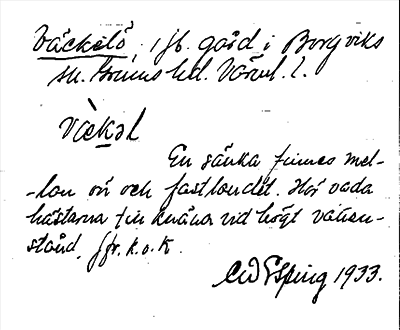 Väckelö, i fb. gård i Borgviks
sn. Grums hd. Värml. l.
Vàckəl
En sänka finnes mel-
-lan ön och fastlandet. Här vada
hästarna till knäna vid högt vatten-
stånd. Jfr. k.o.K.
CWEsping 1933.